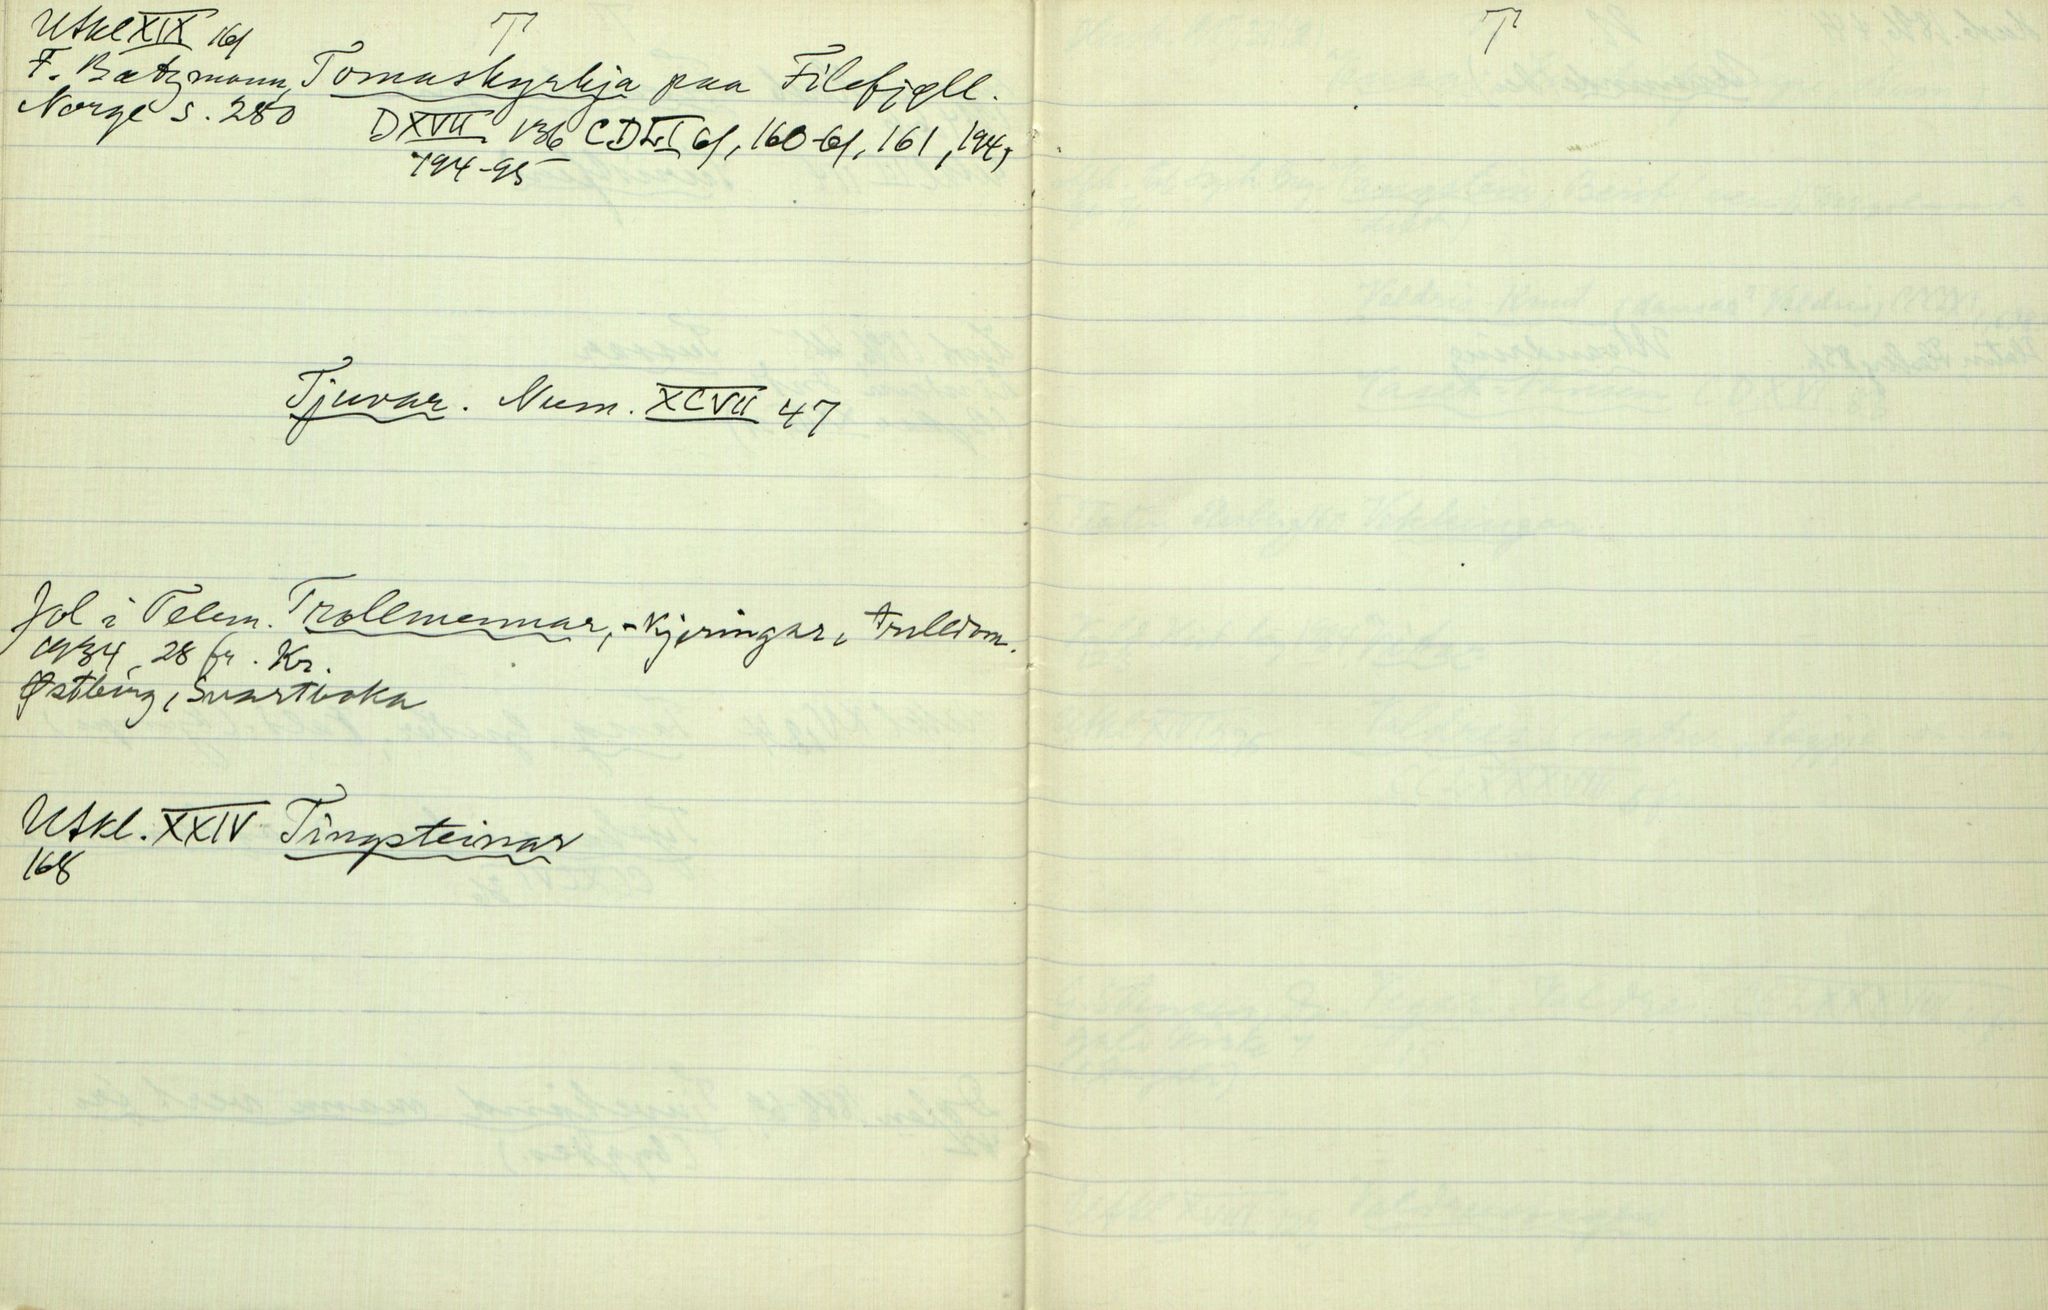 T
Utkl XIX 161
F. Bætzmann, Tomaskyrkja paa Filefjell.
Norge s. 280
DXVII 136 CDLI 61, 160-61, 161, 194,
194-95
Tjuvar. Num. XCVII 47
Jol i Telem. Trollmennar, -kjeringar, trolldom.
1934, 28 fr. Kr.
Østberg, Svartboka
Utkl. XXIV Tingsteinar
168
T